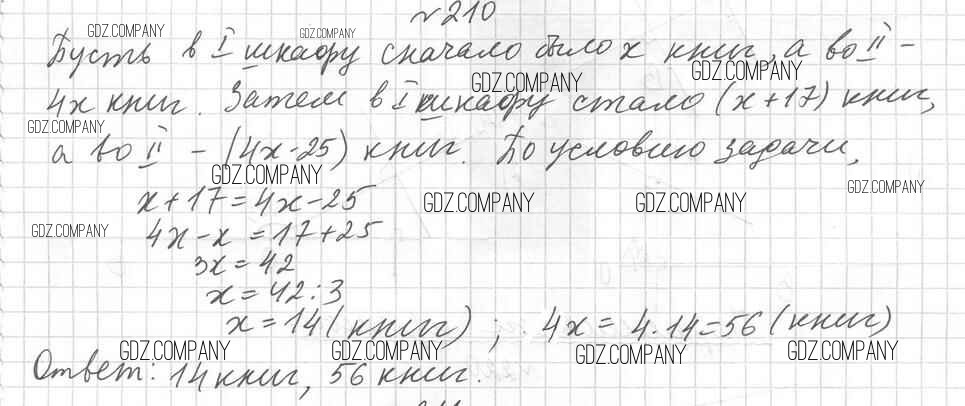 №210
Пусть в I шкафу сначало было x книг, а во II –
4x книг. Затем в I шкафу стало (x+17) книг,
а во II – (4x-25) книг. По условию задачи,
x+17=4x-25
4x-x=17+25
3x=42
x=42:3
x=14(книг); 4x=4·14=56(книг)
Ответ: 14 книг, 56 книг.
GDZ.COMPANY
GDZ.COMPANY
GDZ.COMPANY
GDZ.COMPANY
GDZ.COMPANY
GDZ.COMPANY
GDZ.COMPANY
GDZ.COMPANY
GDZ.COMPANY
GDZ.COMPANY
GDZ.COMPANY
GDZ.COMPANY
GDZ.COMPANY
GDZ.COMPANY